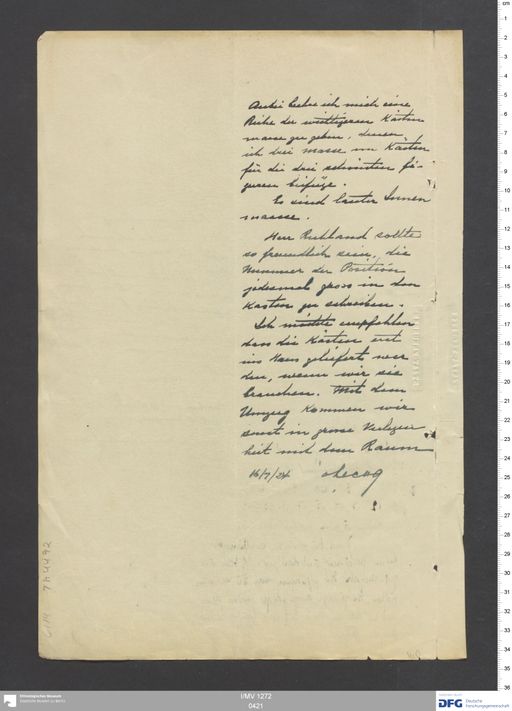 Anbei beehre ich mich eine
Reihe der wichtigeren Kästen
masse zu geben, denen
ich drei masse von Kästen
für die drei schönsten fi-
guren beifüge.
Es sind lauter Innen
maasse.
Herr Ruhland sollte
so freundlich sein, die
Nummer der Position
jedesmal gross in den
Kasten zu schreiben.
Ich möchte empfehlen
dass die Kästen erst
ins Haus geliefert wer
den, wenn wir sie
brauchen. Mit dem
Umzug kommen wir
sonst in grosse Verlegen
heit mit dem Raum
16/7/24 v. Lecoq
I/MV 1272
0421
Ethnologisches Museum
Staatliche Museen zu Berlin
DFG Deutsche
Forschungsgemeinschaft
cm
1
2
3
4
5
6
7
8
9
10
11
12
13
14
15
16
17
18
19
20
21
22
23
24
25
26
27
28
29
30
31
32
33
34
35
36